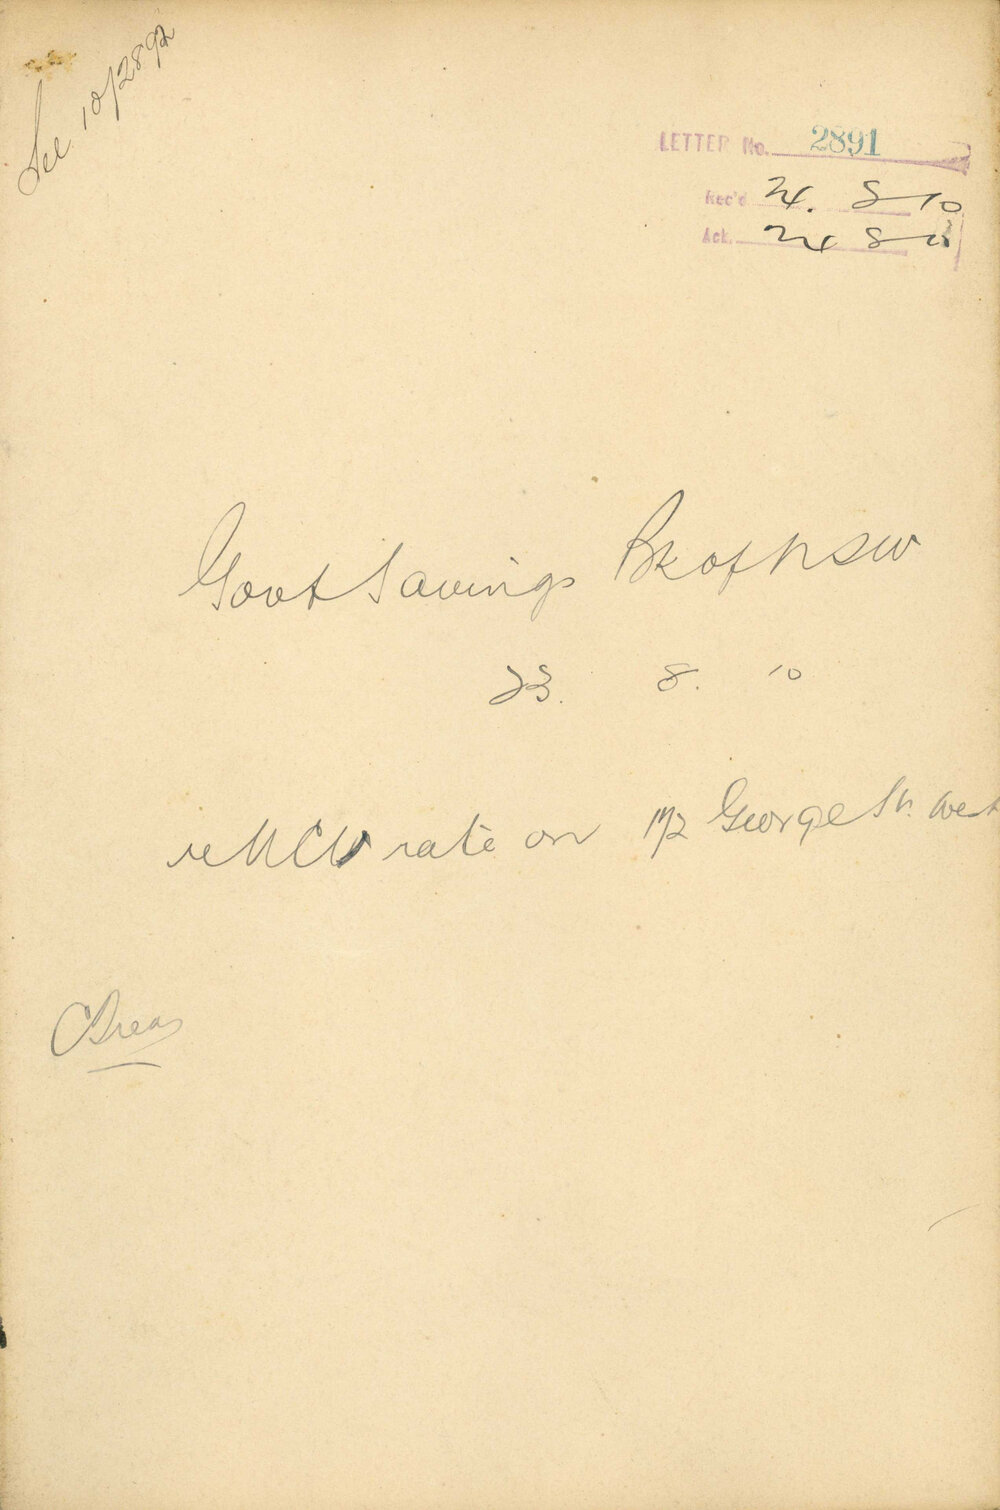 See 10/2892
LETTER No. 2891
Rec'd 24. 8 10
Ack. 24 8 10
Govt Savings Bk of NSW
23. 8. 10
re MCW rate on 172 George St. West